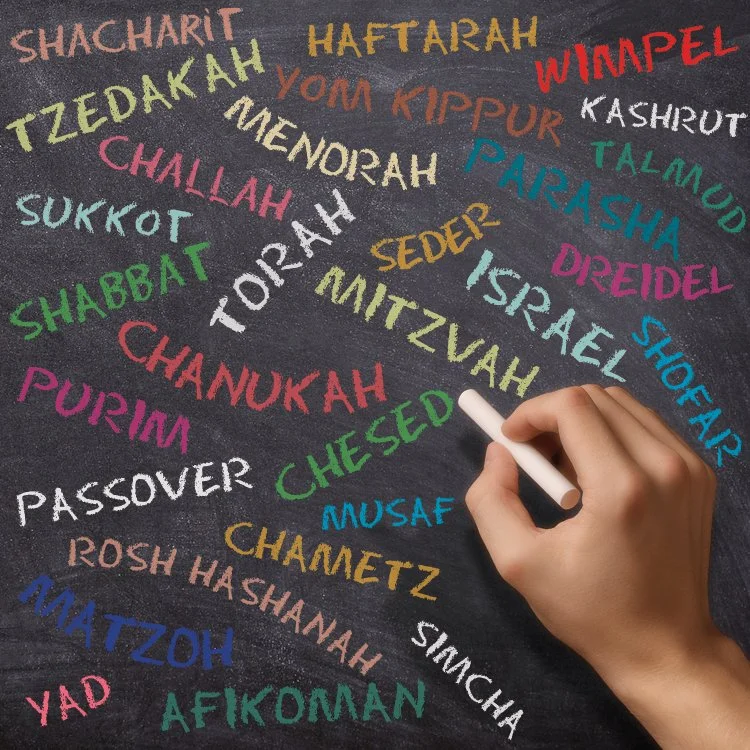 SHACHARIT
HAFTARAH
WIMPEL
TZEDAKAH
YOM KIPPUR
KASHRUT
MENORAH
CHALLAH
PARASHA
TALMUD
SUKKOT
TORAH
SEDER
DREIDEL
SHABBAT
MITZVAH
ISRAEL
SHOFAR
CHANUKAH
PURIM
CHESED
PASSOVER
MUSAF
CHAMETZ
ROSH HASHANAH
MATZOH
SIMCHA
YAD
AFIKOMAN